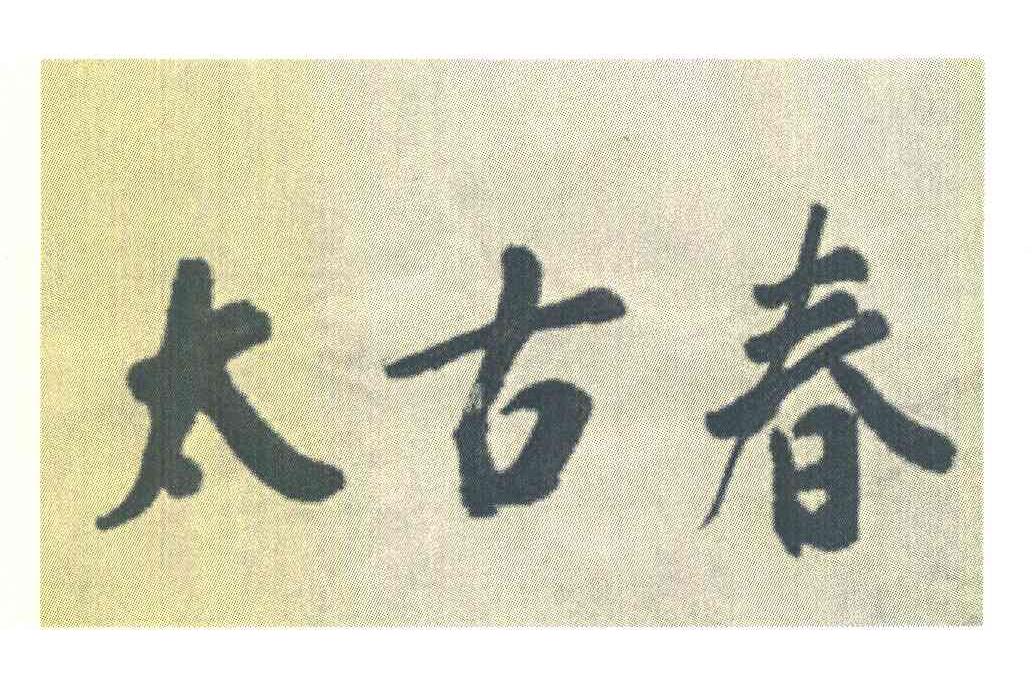 太古春